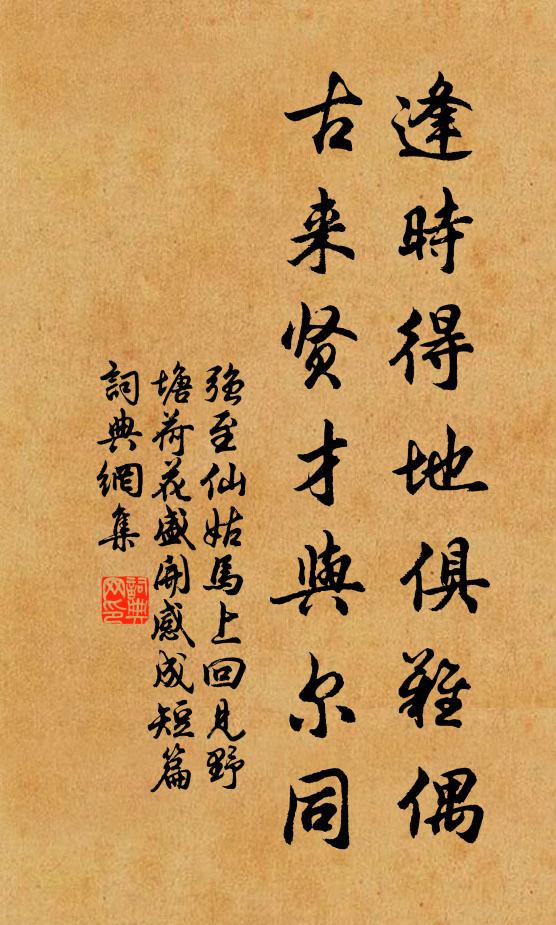 逢時得地俱難偶
古来贤才與尔同
强至仙姑馬上回見野
塘荷花盛開感成短篇
詞典網集
詞典
网印